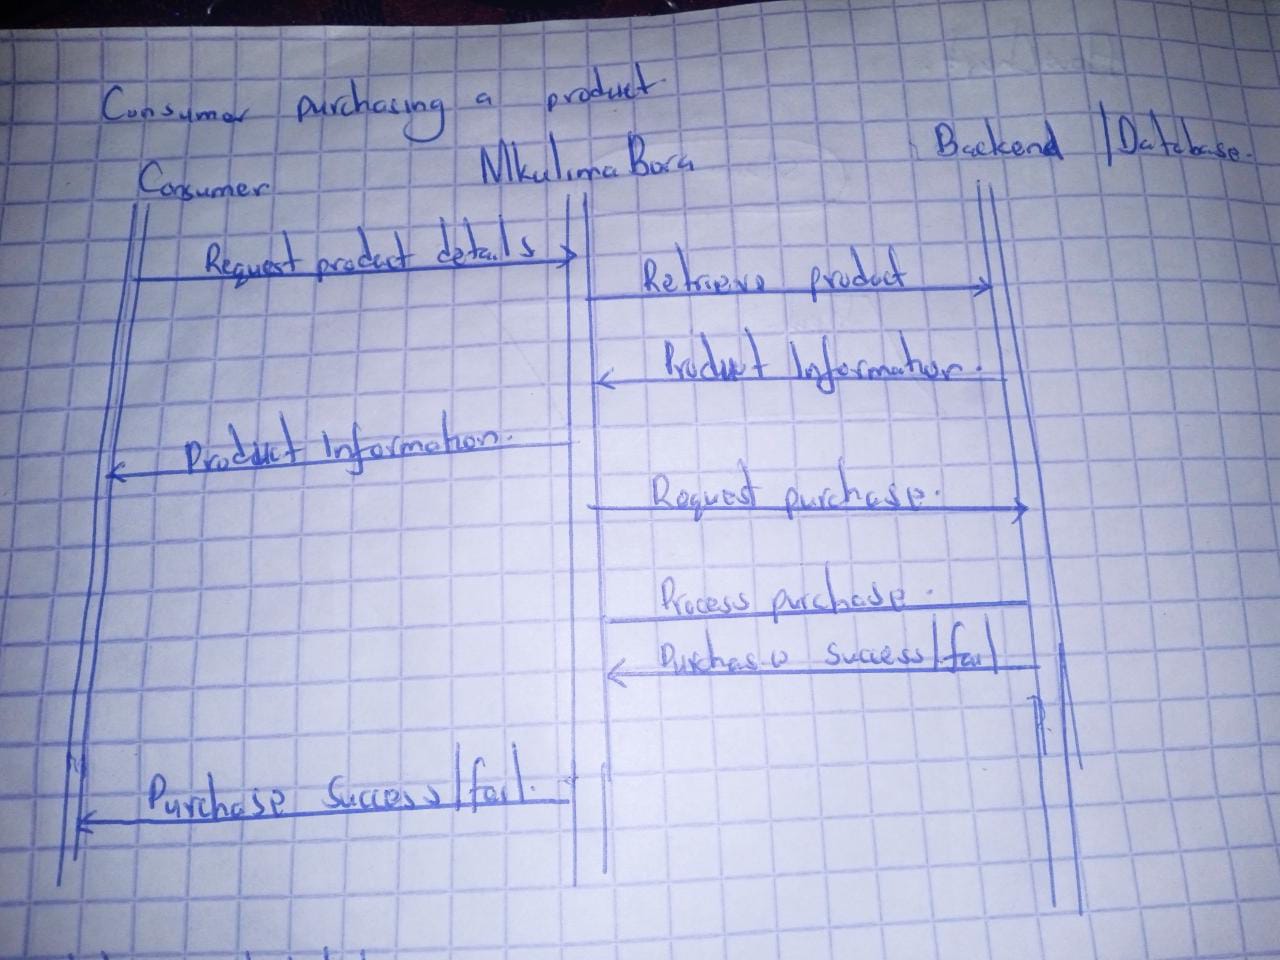 Consumer purchasing a product
Consumer
Mkulima Bora
Backend / Database.
Request product details
Retrieve product
Product Information.
Product Information.
Request purchase.
Process purchase.
Purchase success/fail
Purchase Success/fail.